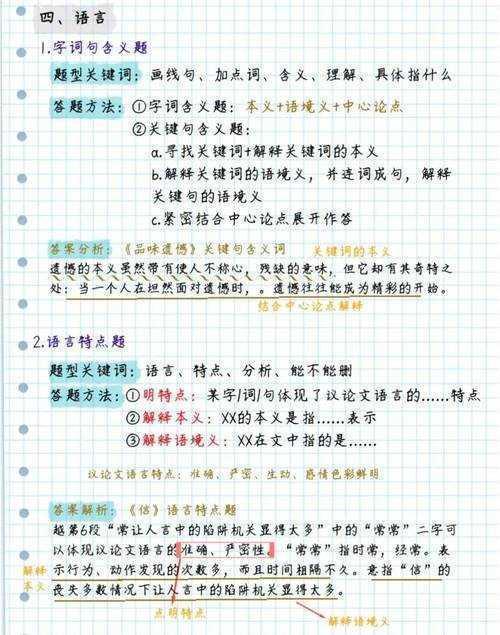 四、语言
1.字词句含义题
题型关键词：画线句、加点词、含义、理解、具体指什么
答题方法：①字词含义题：本义+语境义+中心论点
②关键句含义题：
a.寻找关键词+解释关键词的本义
b.解释关键词的语境义，并连词成句，解释
关键句的语境义
c.紧密结合中心论点展开作答
答案分析：《品味遗憾》关键句含义词 关键词的本义
遗憾的本义虽然带有使人不称心，残缺的意味，但它却有其奇特之
处：当一个人在坦然面对遗憾时，。遗憾往往能成为精彩的开始。
结合中心论点解释
2.语言特点题
题型关键词：语言、特点、分析、能不能删
答题方法：①明特点：某字/词/句体现了议论文语言的……特点
②解释本义：XX的本义是指……表示
③解释语境义：XX在文中指的是……
议论文语言特点：准确、严密、生动、感情色彩鲜明
答案解析：《信》语言特点题
越第6段“常让人言中的陷阱机关显得太多”中的“常常”二字可
以体现议论文语言的准确、严密性。“常常”指时常，经常。表
解释 示行为、动作发现的次数多，而且时间相隔不久。意指“信”的
本义 丧失多数情况下让人言中的陷阱机关显得太多。
点明特点
解释语境义